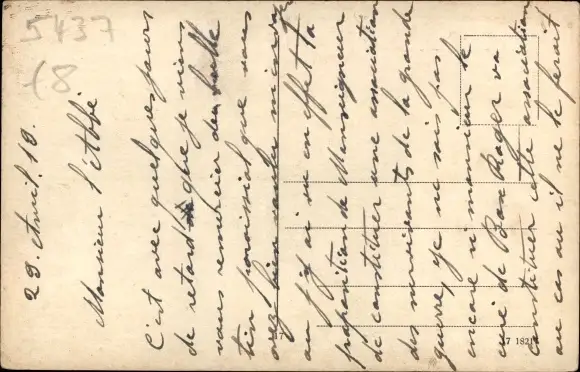 5437
18
29. Avril, 19.
Monsieur l'Abbé
C'est avec quelques jours
de retard que je viens
vous remercier du bulle
tin paroissial que vous
avez bien voulu
au j'y ai vu en effet la
proposition de Monseigneur
de constituer une association
des survivants de la grande
guerre, je ne sais pas
encore si monsieur le
curé de Bax Roger va
constituer cette association
au cas ou il ne le ferait
7 182